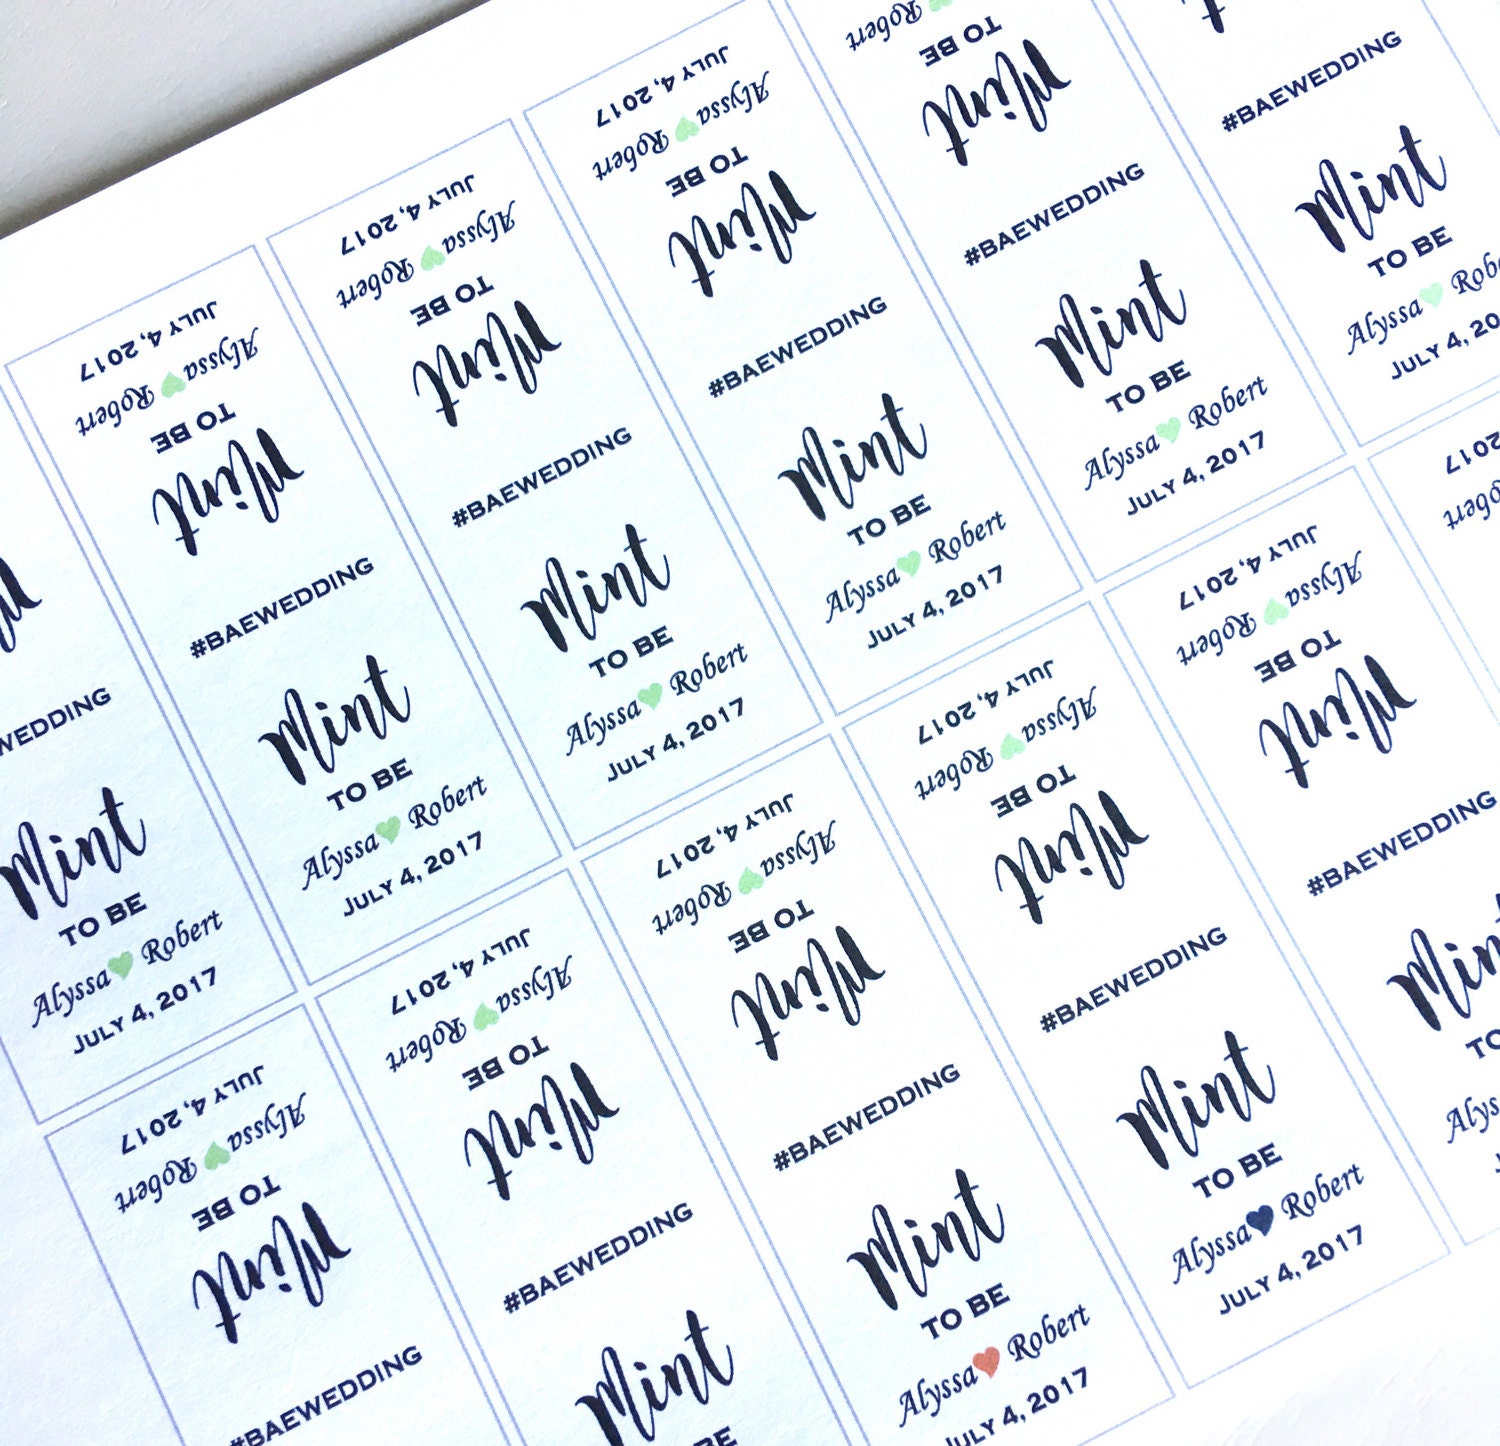 WEDDING
Mint
TO BE
Alyssa♥Robert
JULY 4, 2017
JULY 4, 2017
Alyssa♥Robert
TO BE
Mint
#BAEWEDDING
Mint
TO BE
Alyssa♥Robert
JULY 4, 2017
JULY 4, 2017
Alyssa♥Robert
TO BE
Mint
#BAEWEDDING
Mint
TO BE
Alyssa♥Robert
JULY 4, 2017
JULY 4, 2017
Alyssa♥Robert
TO BE
Mint
#BAEWEDDING
Mint
TO BE
Alyssa♥Robert
JULY 4, 2017
Robert
TO BE
Mint
#BAEWEDDING
Mint
TO BE
Alyssa♥Robert
JULY 4, 2017
#BAEWEDDING
Mint
TO BE
Alyssa♥Rob
JULY 4, 20
JULY 4, 2017
Alyssa♥Robert
TO BE
Mint
#BAEWEDDING
JULY 4, 2017
Alyssa♥Robert
TO BE
Mint
#BAEWEDDING
Mint
BE
JULY 4, 2017
Alyssa♥Robert
TO BE
Mint
#BAEWEDDING
Mint
TO BE
Alyssa♥Robert
JULY 4, 2017
JULY 4, 2017
Alyssa♥Robert
TO BE
Mint
#BAEWEDDING
Mint
TO BE
Alyssa♥Robert
JULY 4, 2017
JULY 4, 2017
Alyssa♥Robert
TO BE
Mint
#BAEWEDDING
Min
TO
Alyss
2017
Robert